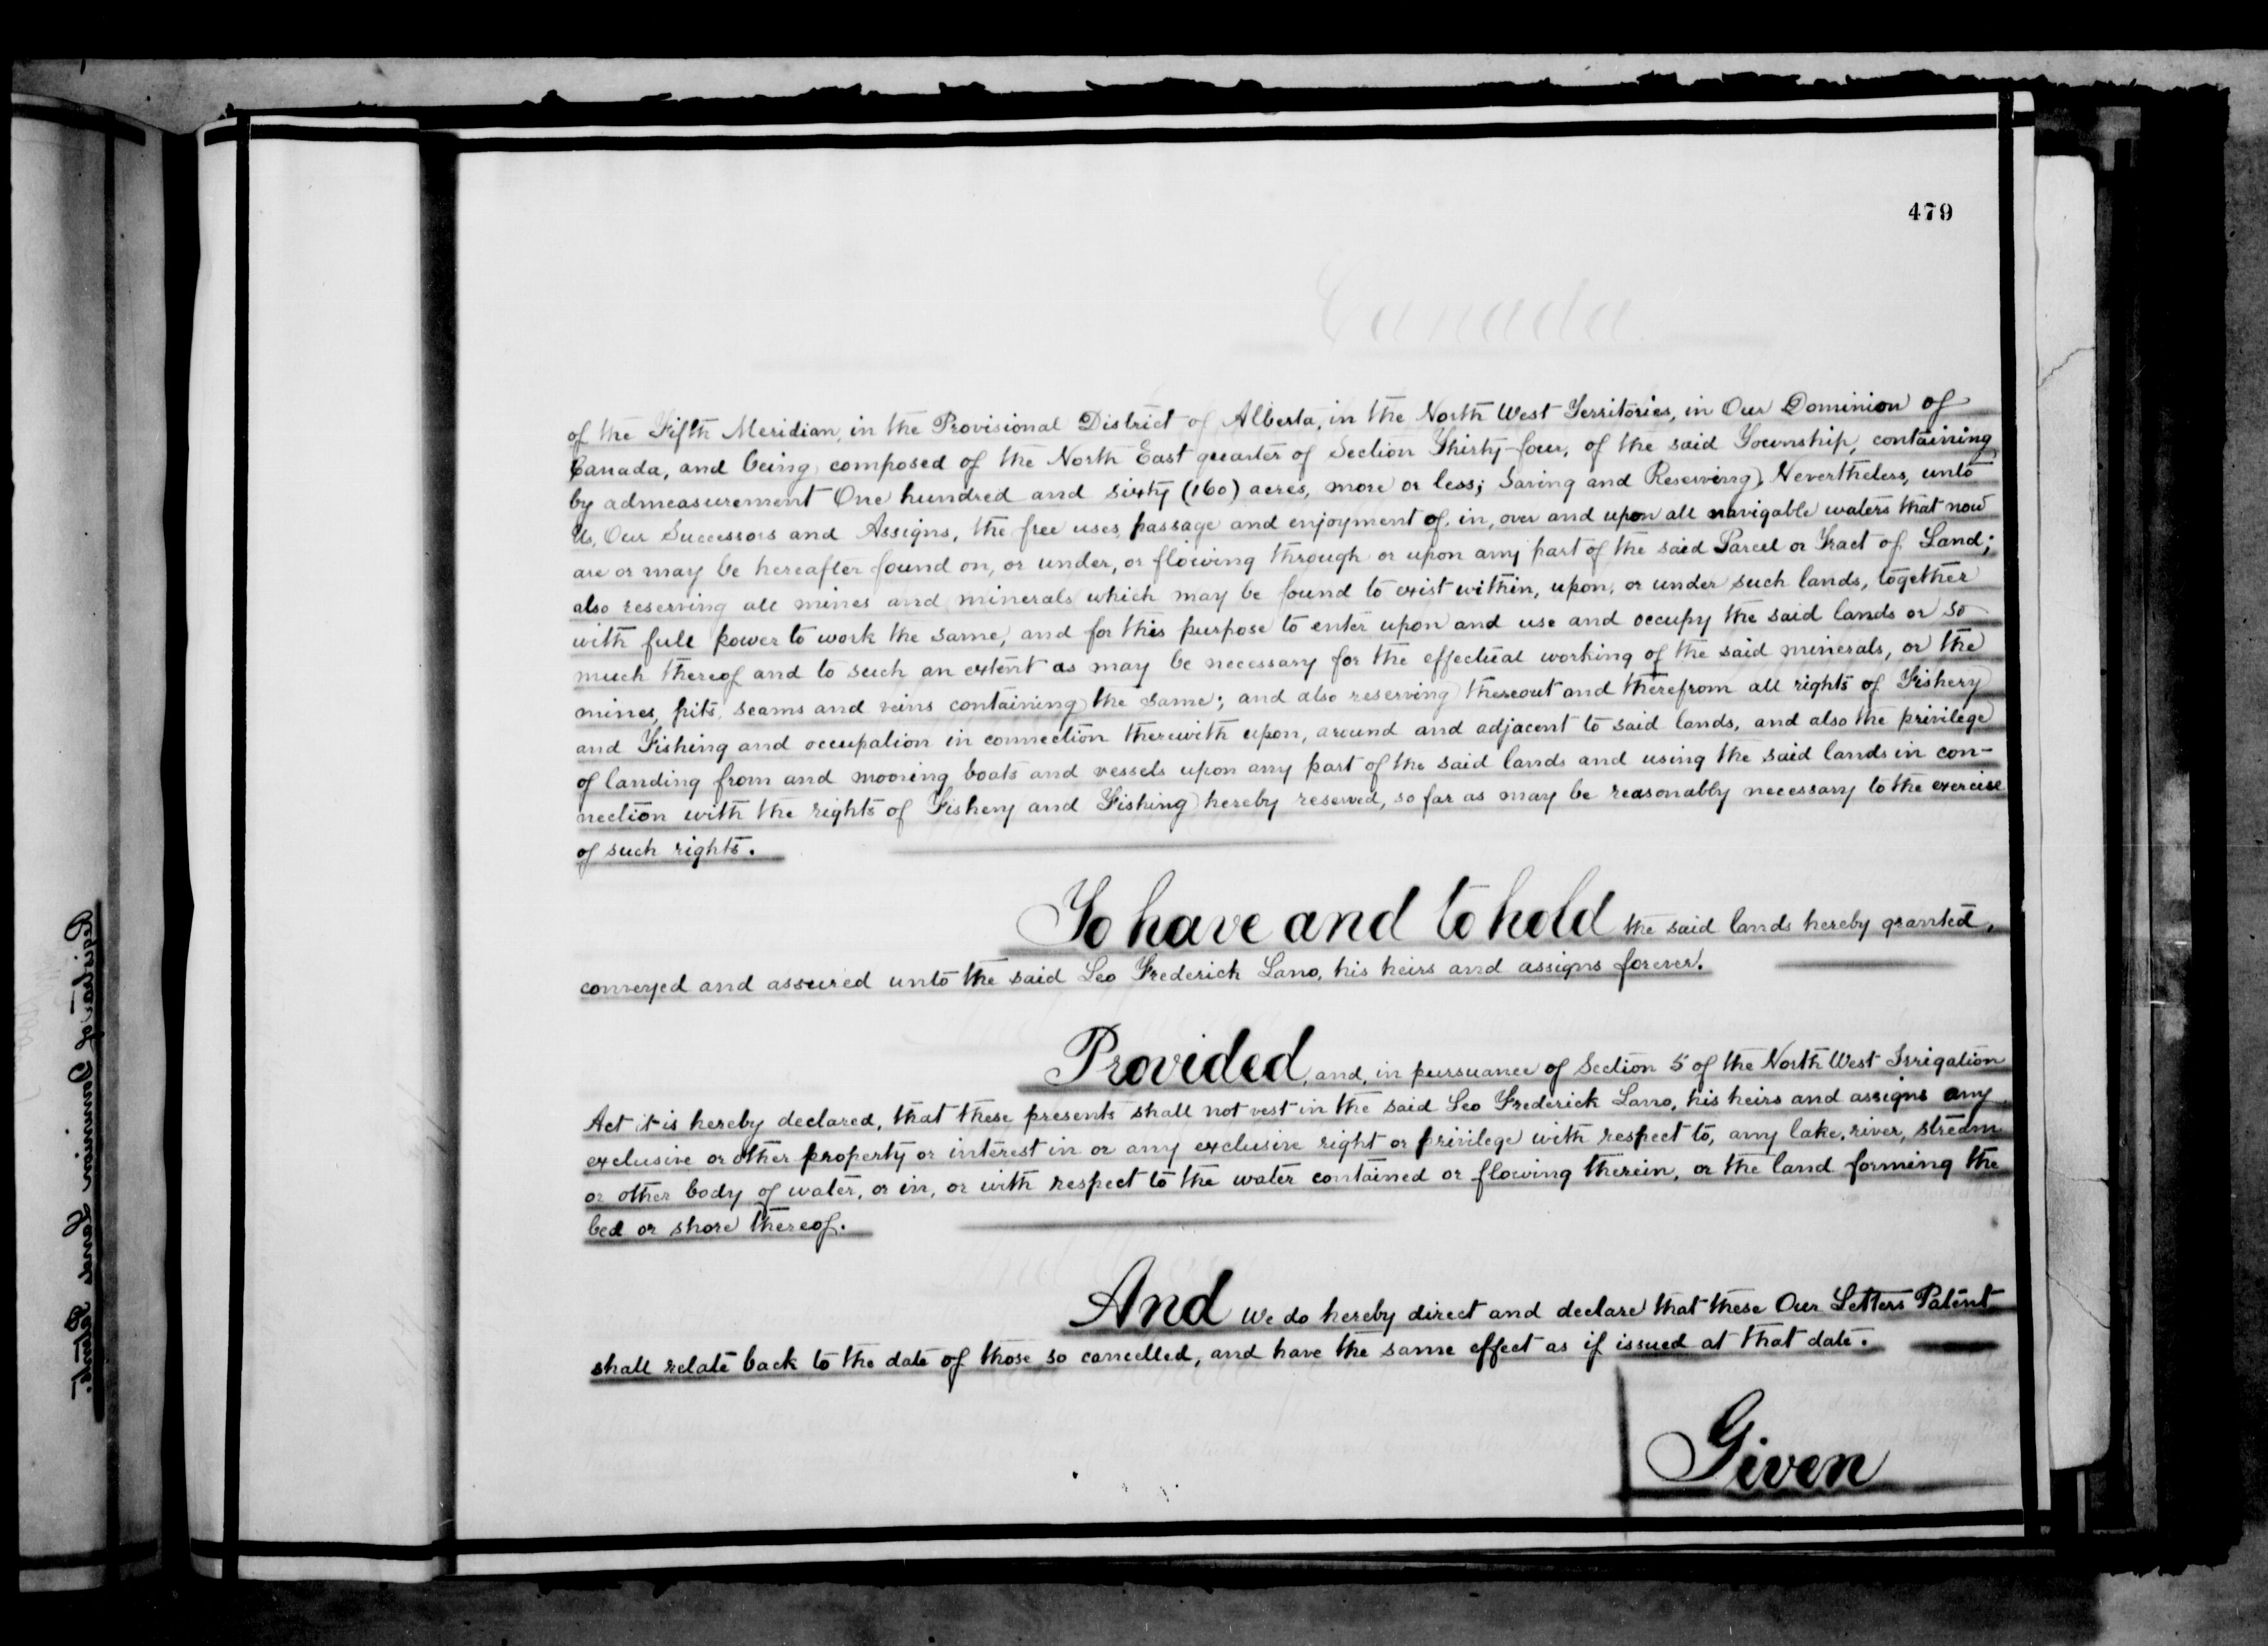 479
of the Fifth Meridian, in the Provisional District of Alberta, in the North West Territories, in Our Dominion of
Canada, and being composed of the North East quarter of Section Thirty-four, of the said Township, containing
by admeasurement One hundred and sixty (160) acres, more or less; Saving and Reserving, Nevertheless, unto
Us, Our Successors and Assigns, the free uses, passage and enjoyment of, in, over and upon all navigable waters that now
are or may be hereafter found on, or under, or flowing through or upon any part of the said Parcel or Tract of Land;
also reserving all mines and minerals which may be found to exist within, upon, or under such lands, together
with full power to work the same, and for this purpose to enter upon and use and occupy the said lands or so
much thereof and to such an extent as may be necessary for the effectual working of the said minerals, or the
mines, pits, seams and veins containing the same; and also reserving thereout and therefrom all rights of Fishery
and Fishing and occupation in connection therewith upon, around and adjacent to said lands, and also the privilege
of landing from and mooring boats and vessels upon any part of the said lands and using the said lands in con-
nection with the rights of Fishery and Fishing hereby reserved, so far as may be reasonably necessary to the exercise
of such rights.
To have and to hold the said lands hereby granted,
conveyed and assured unto the said Leo Frederick Lano, his heirs and assigns forever.
Provided, and, in pursuance of Section 5 of the North West Irrigation
Act it is hereby declared, that these presents shall not vest in the said Leo Frederick Lano, his heirs and assigns any
exclusive or other property or interest in or any exclusive right or privilege with respect to, any lake, river, stream
or other body of water, or in, or with respect to the water contained or flowing therein, or the land forming the
bed or shore thereof.
And We do hereby direct and declare that these Our Letters Patent
shall relate back to the date of those so cancelled, and have the same effect as if issued at that date.
Given
Registrar of Dominion Lands Patents.
Canada